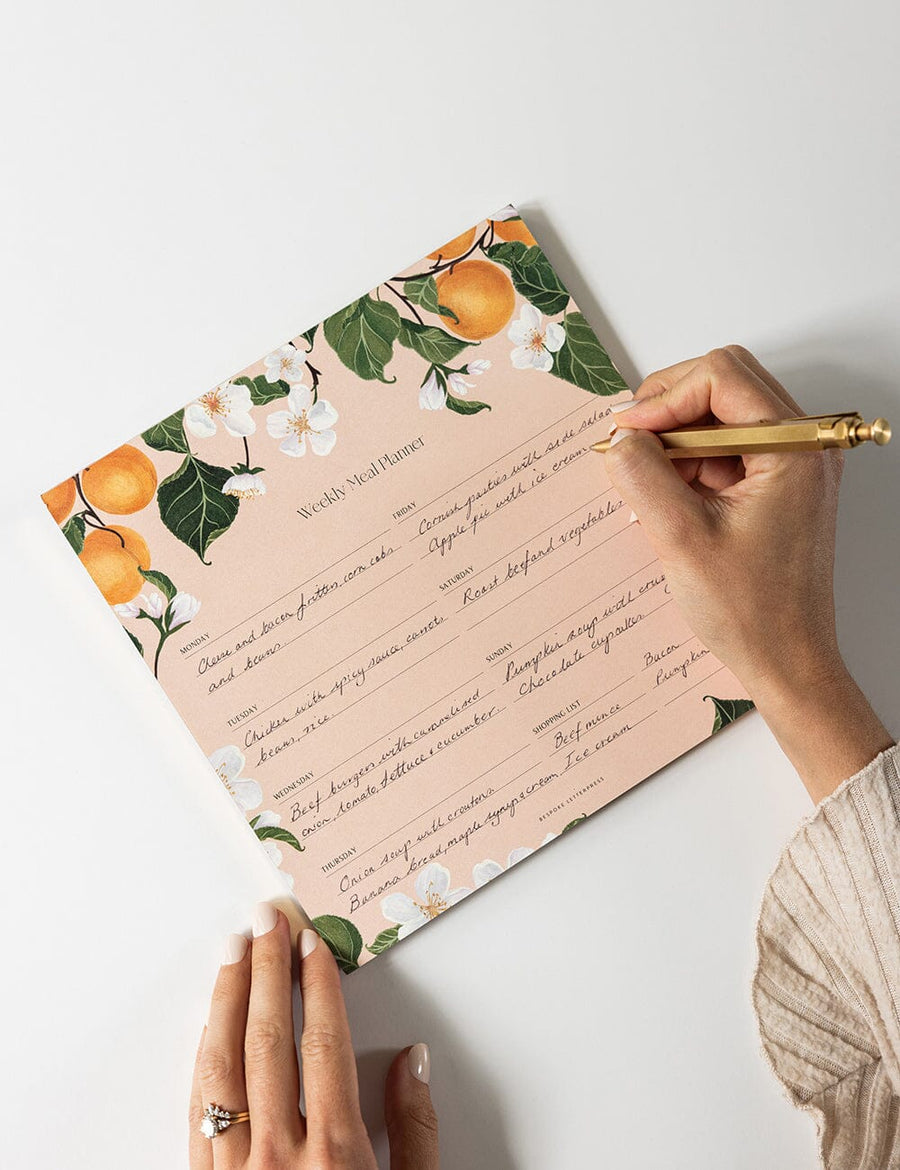 Weekly Meal Planner
MONDAY
Cheese and bacon fritters, corn cobs
and beans.
TUESDAY
Chicken with spicy sauce, carrots
beans, rice
WEDNESDAY
Beef burgers with caramelised
onion, tomato, lettuce & cucumber.
THURSDAY
Onion soup with croutons.
Banana bread, maple syrup & cream
FRIDAY
Cornish pasties with side salad
Apple pie with ice cream
SATURDAY
Roast beef and vegetables
SUNDAY
Pumpkin soup with
Chocolate cupcakes
SHOPPING LIST
Beef mince
Ice cream
Bacon
Pumpkin
BESPOKE LETTERPRESS